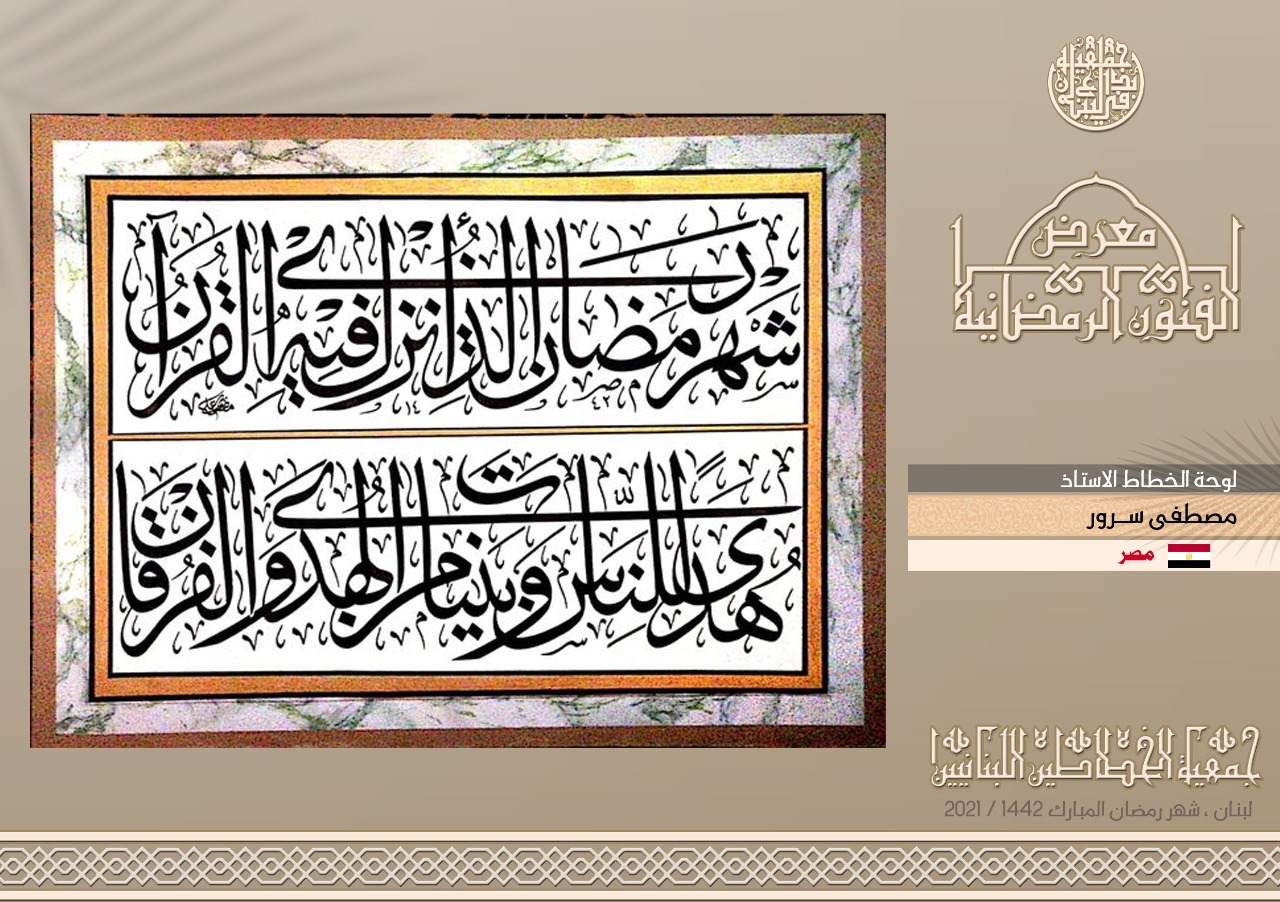 معرض
الفنون الرمضانية
شهر رمضان الذي أنزل فيه القرآن
هدى للناس وبينات من الهدى والفرقان
لوحة الخطاط الاستاذ
مصطفى سرور
مصر
جمعية الخطاطين اللبنانيين
لبنان ، شهر رمضان المبارك 1442 / 2021